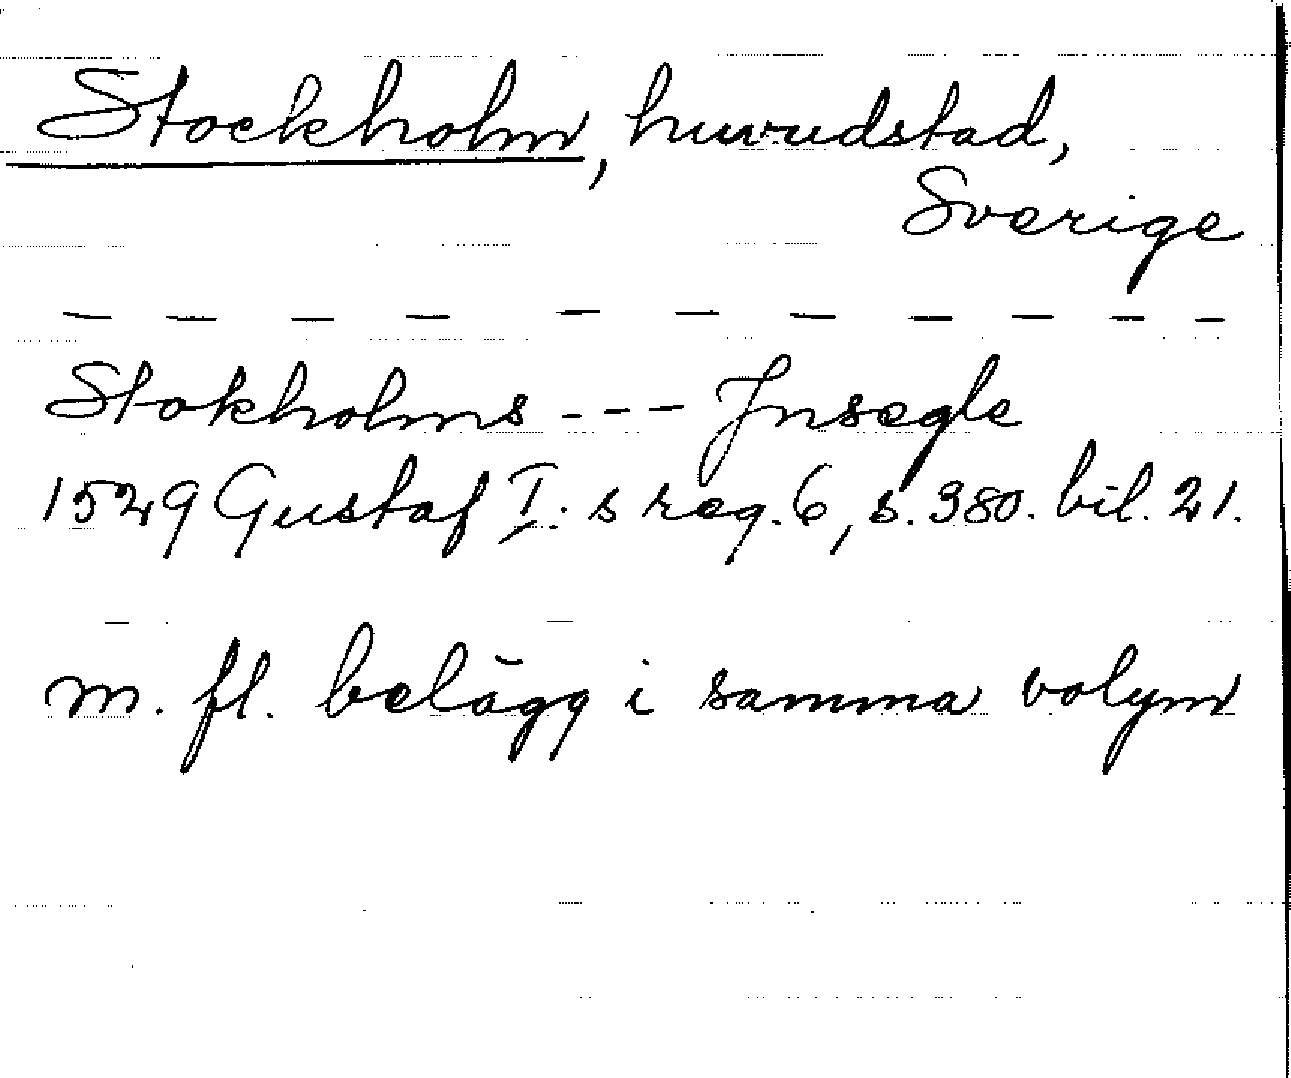 Stockholm, huvudstad,
Sverige
— — — — — — — — — — —
Stokholms --- Jnsegle
1529 Gustaf I.s reg. 6, s. 380. bil. 21.
m. fl. belägg i samma volym